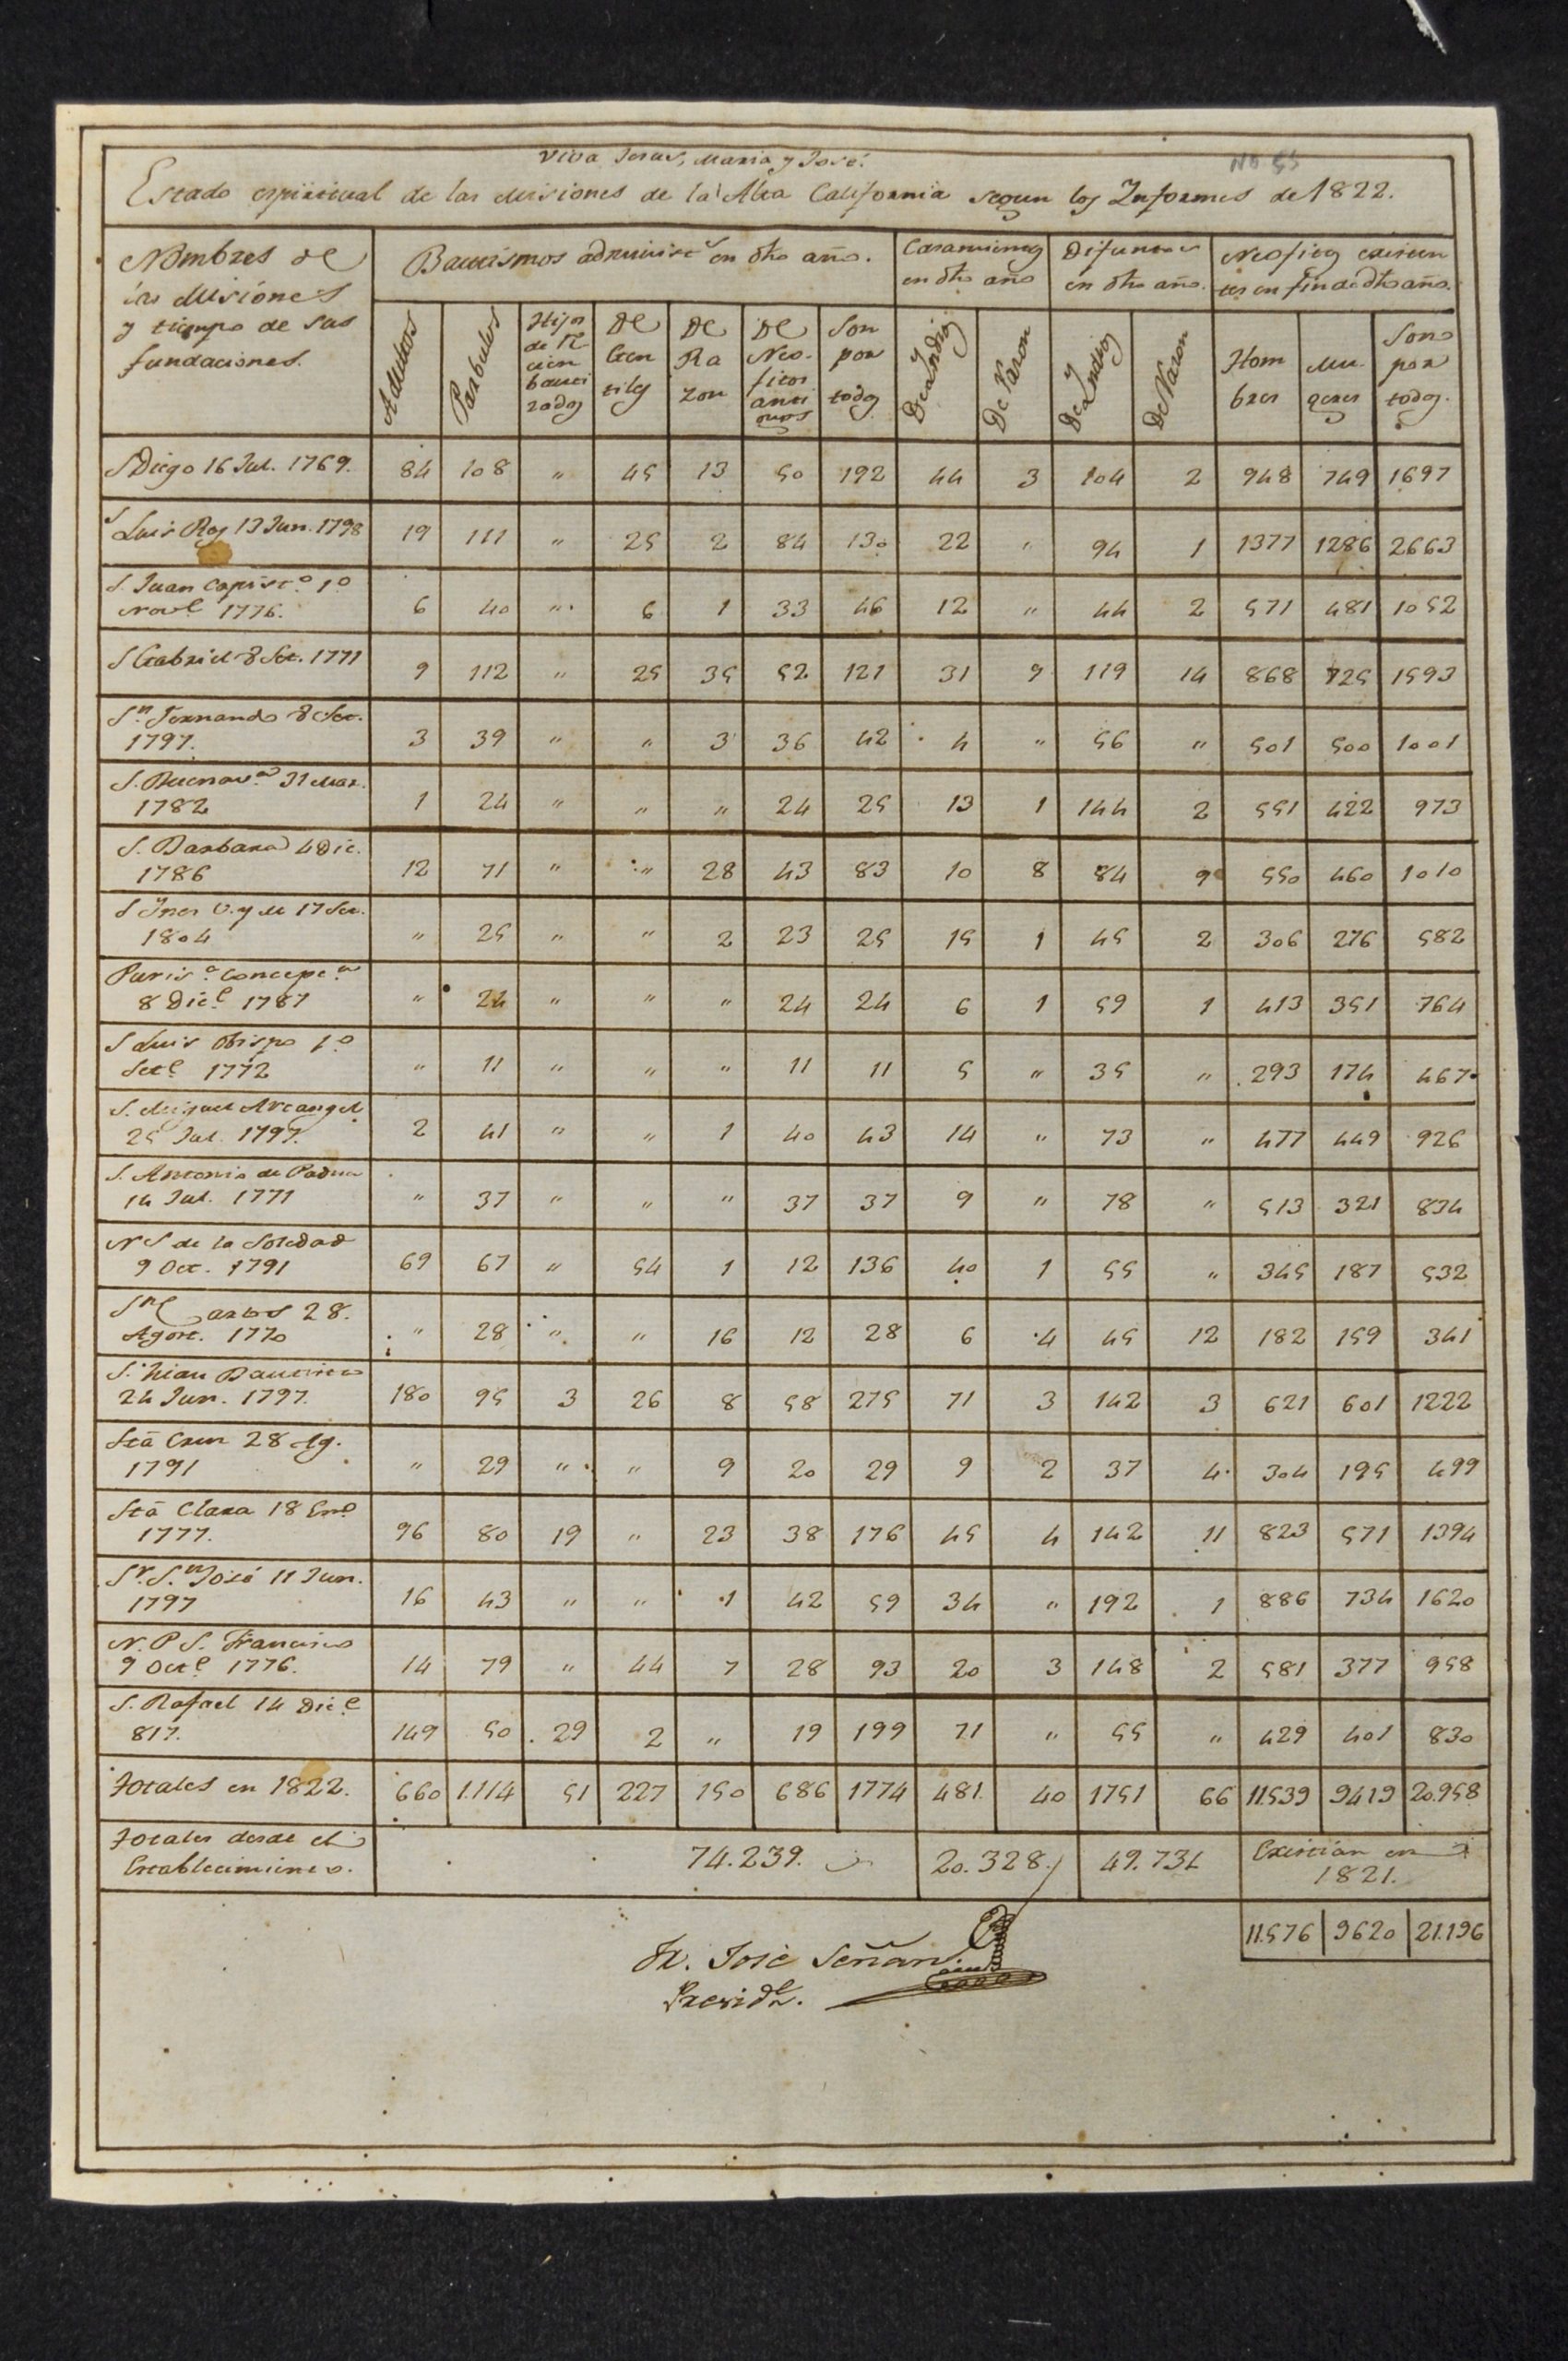 Viva Jesus, Maria y José.
No 55
Estado espiritual de las Misiones de la Alta California segun los Informes de 1822.
Nombres de las Misiones y tiempo de sus fundaciones. | Bautismos administ.s en dho año. | Casamientos en dho año | Difuntos en dho año. | Neofitos existentes en fin de dho año.
Adultos | Parbulos | Hijos de Recien bautizados | De Gentiles | De Razon | De Neofitos antiguos | Son por todos | De Indios | De Razon | De Indios | De Razon | Hombres | Mugeres | Son por todos.
S Diego 16 Jul. 1769. | 84 | 108 | " | 45 | 13 | 50 | 192 | 44 | 3 | 104 | 2 | 948 | 749 | 1697
S Luis Rey 13 Jun. 1798 | 19 | 111 | " | 25 | 2 | 84 | 130 | 22 | " | 94 | 1 | 1377 | 1286 | 2663
S. Juan Capist.o 1o Nov.e 1776. | 6 | 40 | " | 6 | 1 | 33 | 46 | 12 | " | 44 | 2 | 571 | 481 | 1052
S Gabriel 8 Set. 1771 | 9 | 112 | " | 25 | 35 | 52 | 121 | 31 | 9 | 119 | 14 | 868 | 725 | 1593
S.n Fernando 8 Set. 1797. | 3 | 39 | " | " | 3 | 36 | 42 | 4 | " | 56 | " | 501 | 500 | 1001
S. Buenav.a 31 Mar. 1782 | 1 | 24 | " | " | " | 24 | 25 | 13 | 1 | 144 | 2 | 551 | 422 | 973
S. Barbara 4 Dic. 1786 | 12 | 71 | " | " | 28 | 43 | 83 | 10 | 8 | 84 | 9 | 550 | 460 | 1010
S Ynes V. y M 17 Set. 1804 | " | 25 | " | " | 2 | 23 | 25 | 15 | 1 | 45 | 2 | 306 | 276 | 582
Puris.a Concepc.n 8 Dic.e 1787 | " | 24 | " | " | " | 24 | 24 | 6 | 1 | 59 | 1 | 413 | 351 | 764
S Luis Obispo 1o Set.e 1772 | " | 11 | " | " | " | 11 | 11 | 5 | " | 35 | " | 293 | 174 | 467
S. Miguel Arcangel 25 Jul. 1797. | 2 | 41 | " | " | 1 | 40 | 43 | 14 | " | 73 | " | 477 | 449 | 926
S. Antonio de Padua 14 Jul. 1771 | " | 37 | " | " | " | 37 | 37 | 9 | " | 78 | " | 513 | 321 | 834
N S de la Soledad 9 Oct. 1791 | 69 | 67 | " | 54 | 1 | 12 | 136 | 40 | 1 | 55 | " | 345 | 187 | 532
S.n Carlos 28. Agost. 1770 | " | 28 | " | " | 16 | 12 | 28 | 6 | 4 | 45 | 12 | 182 | 159 | 341
S. Juan Bautista 24 Jun. 1797. | 180 | 95 | 3 | 26 | 8 | 58 | 275 | 71 | 3 | 142 | 3 | 621 | 601 | 1222
Sta Cruz 28 Ag. 1791 | " | 29 | " | " | 9 | 20 | 29 | 9 | 2 | 37 | 4 | 304 | 195 | 499
Sta Clara 18 En.o 1777. | 96 | 80 | 19 | " | 23 | 38 | 176 | 45 | 4 | 142 | 11 | 823 | 571 | 1394
S.r S.n José 11 Jun. 1797 | 16 | 43 | " | " | 1 | 42 | 59 | 34 | " | 192 | 1 | 886 | 734 | 1620
N. P S. Francisco 9 Oct.e 1776. | 14 | 79 | " | 44 | 7 | 28 | 93 | 20 | 3 | 148 | 2 | 581 | 377 | 958
S. Rafael 14 Dic.e 817. | 149 | 50 | 29 | 2 | " | 19 | 199 | 71 | " | 55 | " | 429 | 401 | 830
Totales en 1822. | 660 | 1.114 | 51 | 227 | 150 | 686 | 1774 | 481. | 40 | 1751 | 66 | 11.539 | 9419 | 20.958
Totales desde el Establecimiento. | 74.239. | 20.328. | 49.734 | Existian en 1821.
11.576 | 9620 | 21.196
Fr. José Señan.
Presid.te